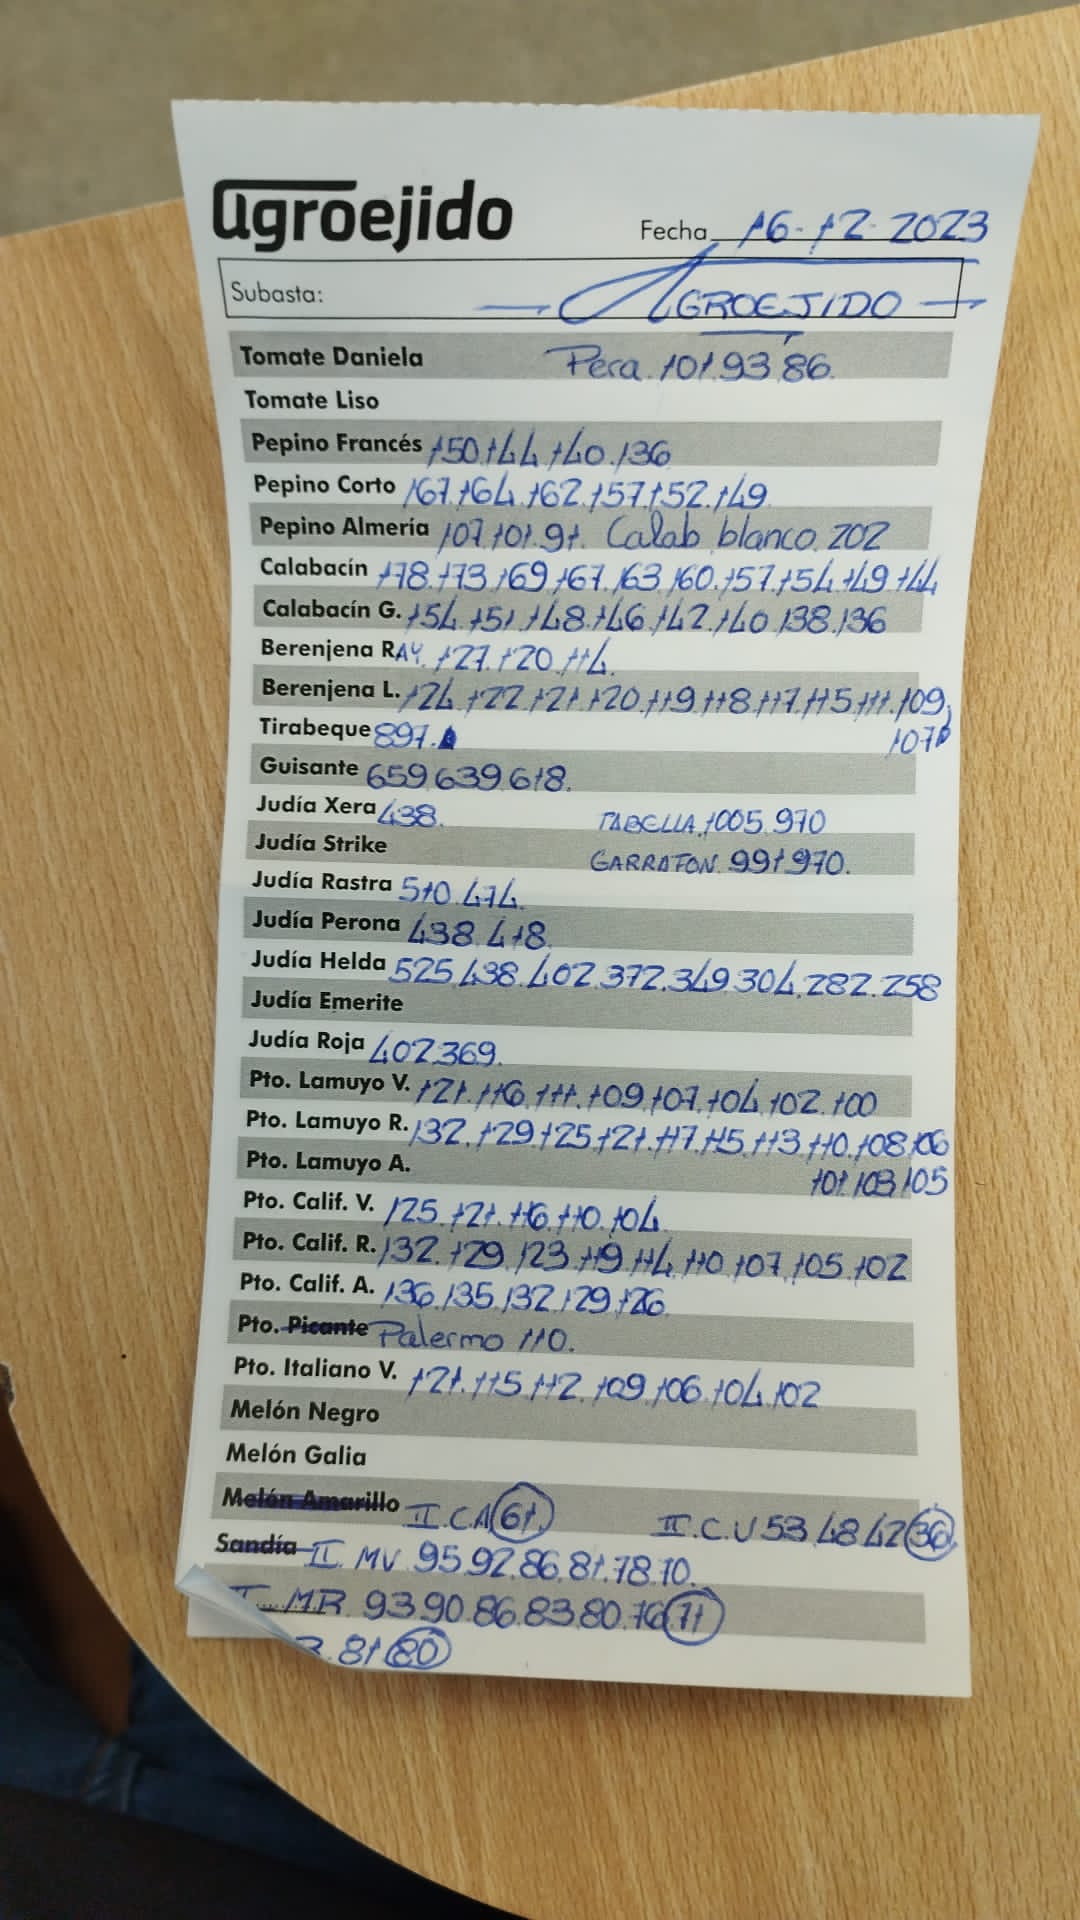 agroejido
Fecha 16-12-2023
Subasta: AGROEJIDO
Tomate Daniela Pera. 101.93.86.
Tomate Liso
Pepino Francés 150.144.140.136
Pepino Corto 167.164.162.157.152.149
Pepino Almería 107.101.91. Calab blanco. 202
Calabacín 178.173.169.167.163.160.157.154.149.144
Calabacín G. 154.151.148.146.142.140.138.136
Berenjena RAY. 127.120.114.
Berenjena L. 124.122.121.120.119.118.117.115.111.109.
Tirabeque 897. 107
Guisante 659.639.618.
Judía Xera 438. TABELLA.1005.970
Judía Strike GARRAFON. 991.970.
Judía Rastra 510.474.
Judía Perona 438.418.
Judía Helda 525.438.402.372.349.304.282.258
Judía Emerite
Judía Roja 402.369.
Pto. Lamuyo V. 121.116.111.109.107.104.102.100
Pto. Lamuyo R. 132.129.125.121.117.115.113.110.108.106
Pto. Lamuyo A. 101.103.105
Pto. Calif. V. 125.121.116.110.104
Pto. Calif. R. 132.129.123.119.114.110.107.105.102
Pto. Calif. A. 136.135.132.129.126
Pto. Picante Palermo 110.
Pto. Italiano V. 121.115.112.109.106.104.102
Melón Negro
Melón Galia
Melón Amarillo II.C.A 61. II.C.V 53.48.42.36
Sandía II. MV. 95.92.86.81.78.70.
MR. 93.90.86.83.80.76.71
81.80